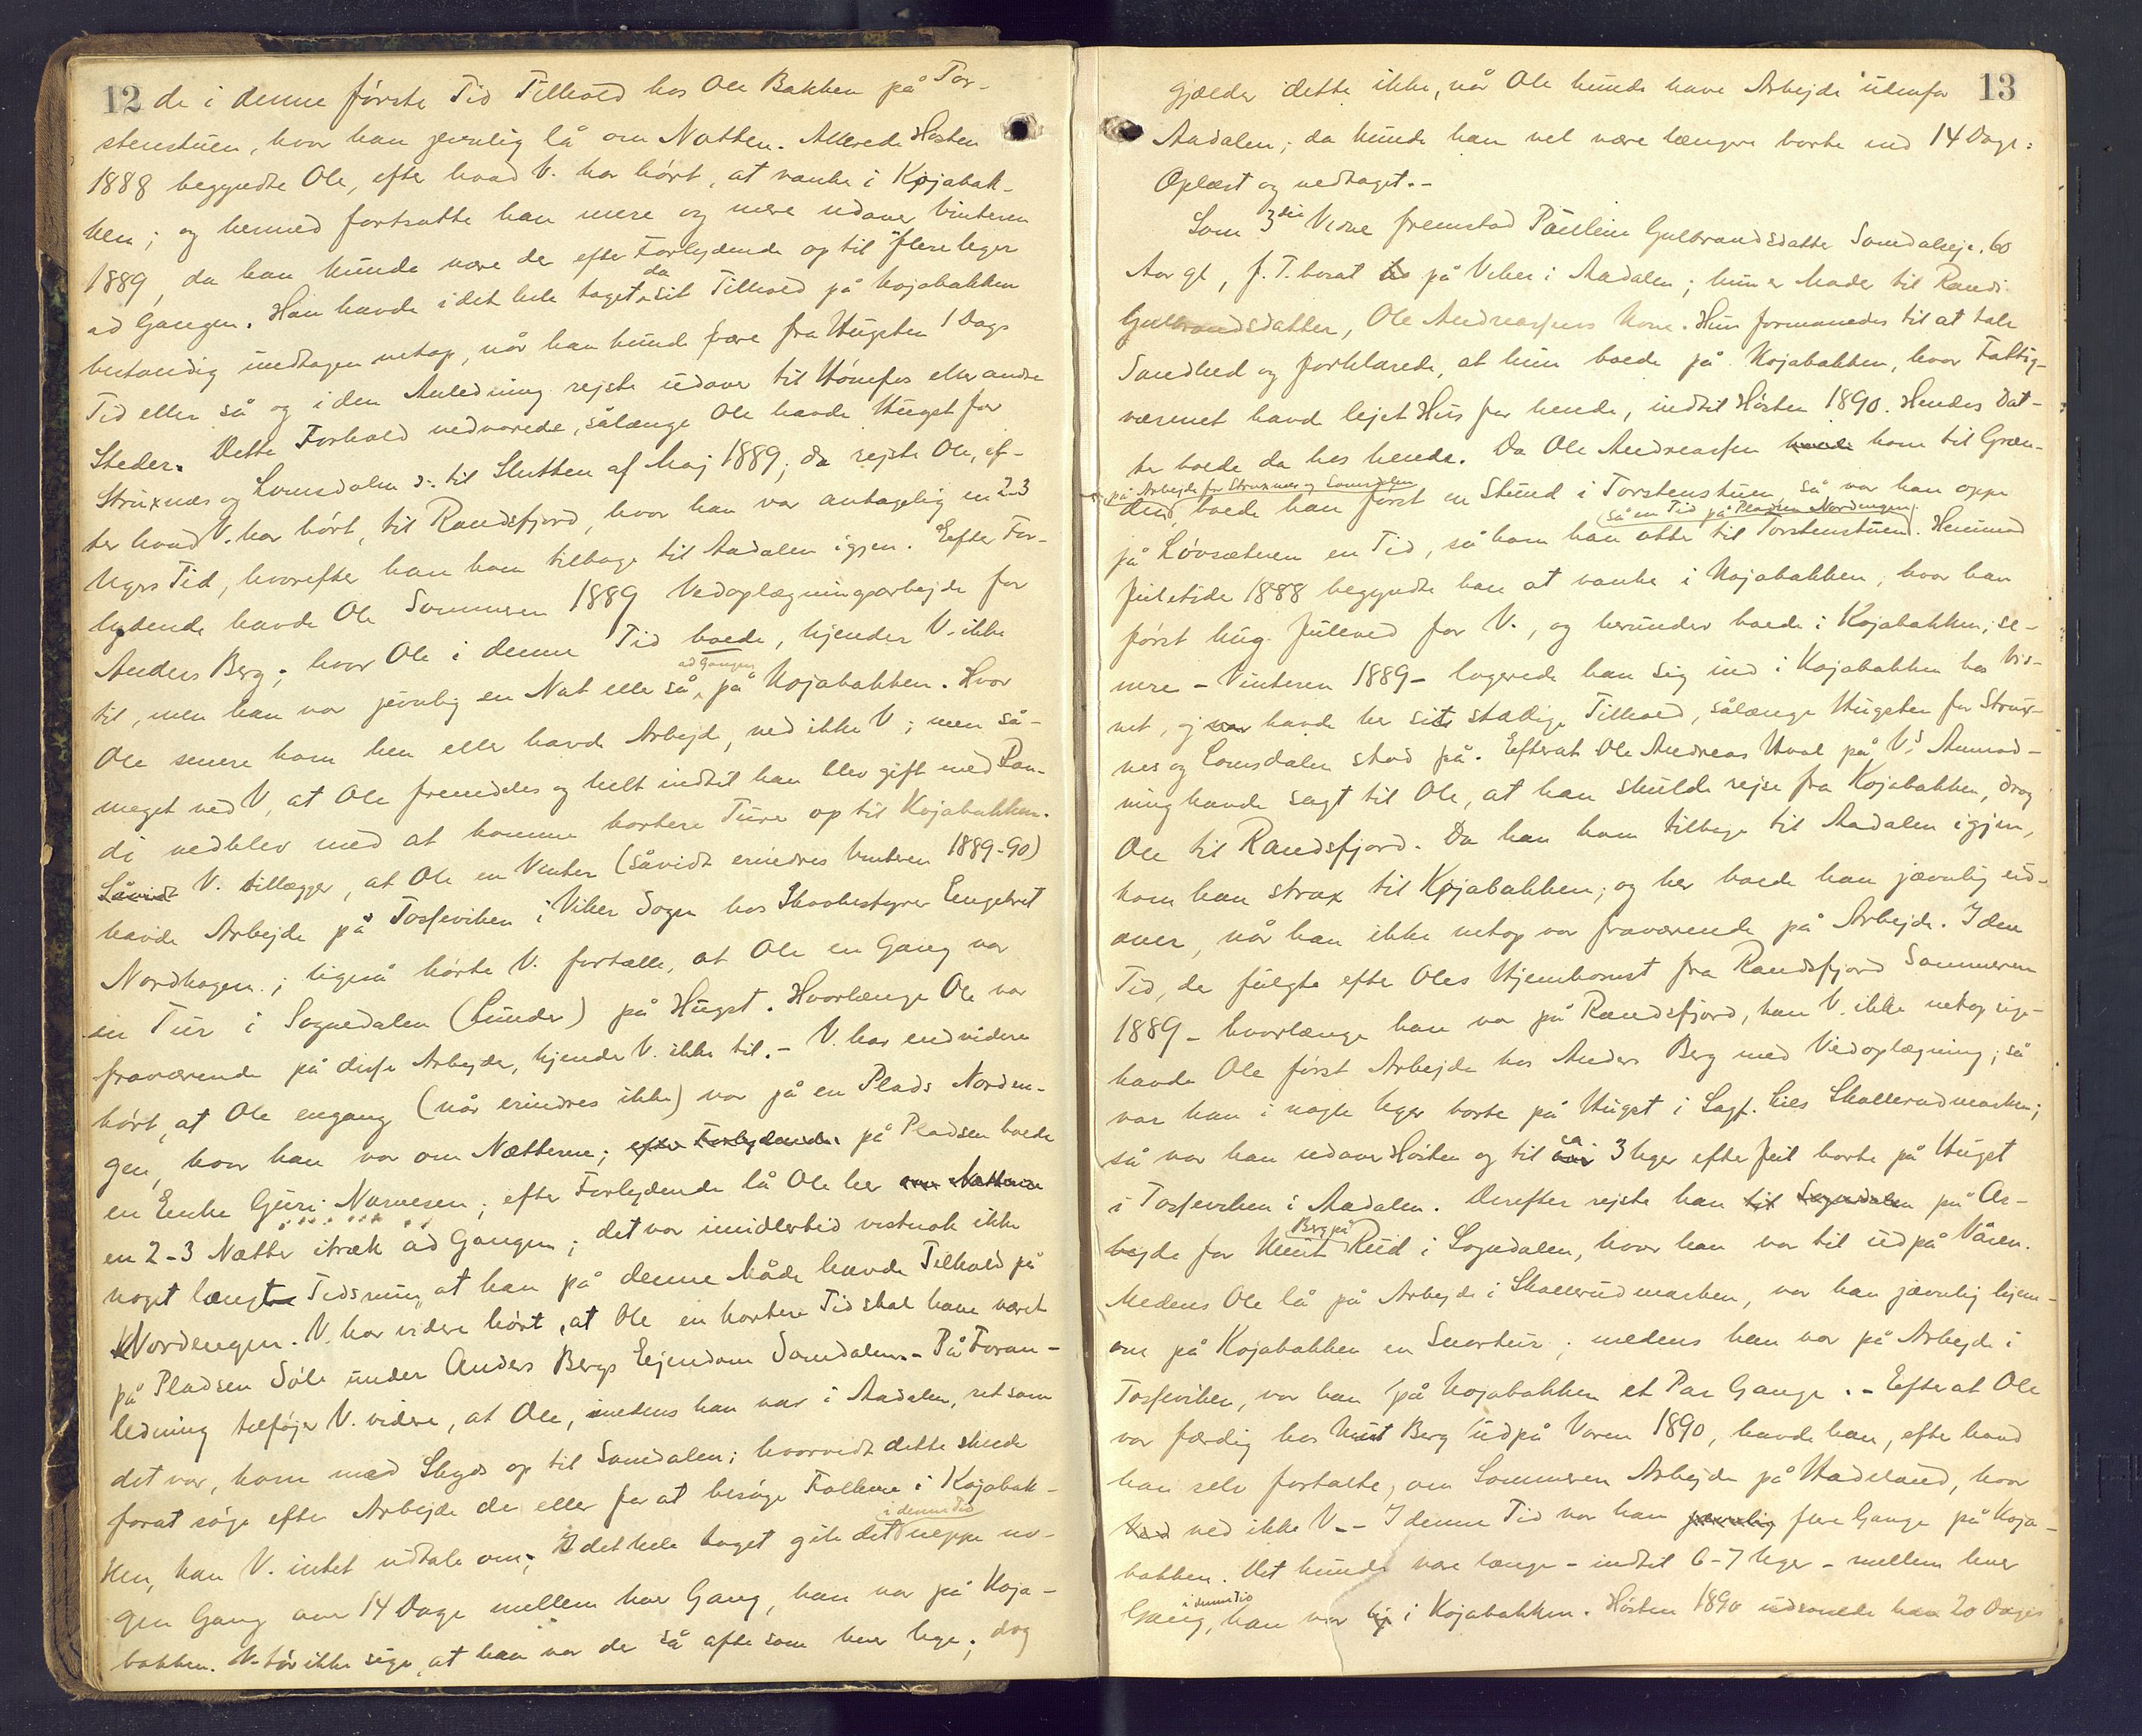 12 de i denne første Tid Tilhold hos Ole Bakken på Tor-
stenstuen, hvor han jevnlig lå om Natten. Allerede Høsten
1888 begyndte Ole, efter hvad V. har hørt, at vanke i Kojabak-
ken; og hermed fortsatte han mere og mere udover Vinteren
1889, da han kunde være der efter Forlydende op til flere Uger
ad Gangen. Han havde i det hele taget da sit Tilhold på Kojabakken
bestandig undtagen netop, når han kunde fare fra Hugsten 1 Dags
Tid eller så og i den Anledning rejste udover til Hønefos eller andre
Steder. Dette Forhold vedvarede, sålænge Ole havde Hugst for
Struxnæs og Lomsdalen ɔ: til Slutten af Maj 1889; da rejste Ole, ef-
ter hvad V. har hørt, til Randsfjord, hvor han var antagelig en 2-3
Ugers Tid, hvorefter han kom tilbage til Aadalen igjen. Efter For-
lydende havde Ole Sommeren 1889 Vedoplægningsarbejde for
Anders Berg; hvor Ole i denne Tid boede, kjender V. ikke
til, men han var jevnlig en Nat eller så ad Gangen på Kojabakken. Hvor
Ole senere kom hen eller havde Arbejde, ved ikke V; men så-
meget ved V, at Ole fremdeles og helt indtil han blev gift med Ran-
di vedblev med at komme kortere Ture op til Kojabakken.
Såvidt V. tillægger, at Ole en Vinter (såvidt erindres Vinteren 1889-90)
havde Arbejde på Tosseviken i Viker Sogn hos Skovbestyrer Engebret
Nordhagen; ligeså hørte V. fortælle, at Ole en Gang var
en Tur i Sognedalen (Lunder) på Hugst. Hvorlænge Ole var
fraværende på disse Arbejder, kjender V. ikke til. - V. har endvidere
hørt, at Ole engang (når erindres ikke) var på en Plads Norden-
gen, hvor han var om Nætterne; efter Forlydende på Pladsen boede
en Enke Guri Narvesen; efter Forlydende lå Ole her om Nætterne
en 2-3 Nætter itræk ad Gangen; det var imidlertid vistnok ikke
noget længere Tidsrum, at han på denne Måde havde Tilhold på
Nordengen. V. har videre hørt, at Ole en kortere Tid skal have været
på Pladsen Søle under Anders Bergs Eiendom Somdalen. - På Foran-
ledning tilføjer V. videre, at Ole, imedens han var i Aadalen, ret som
det var, kom med Skyds op til Somdalen; hvorvidt dette skede
forat søge efter Arbejde der eller for at besøge Folkene i Kojabak-
ken, kan V. intet udtale om; I det hele taget gik det i denne Tid neppe no-
gen Gang over 14 Dage mellem hver Gang, han var på Koja-
bakken. V. tør ikke sige, at han var der så ofte som hver Uge; dog
gjælder dette ikke, når Ole kunde have Arbejde udenfor 13
Aadalen; da kunde han vel være længere borte end 14 Dage:
Oplæst og vedtaget. -
Som 3die Vidne fremstod Pauline Gulbrandsdatter Somdaleje. 60
Aar gl, f. T. bosat hos på Viker i Aadalen; hun er Moder til Randi
Gulbrandsdatter, Ole Andreassens Kone. Hun formanedes til at tale
Sandhed og forklarede, at hun boede på Kojabakken, hvor Fattig-
væsenet havde lejet Hus for hende, indtil Høsten 1890. Hendes Dat-
ter boede da hos hende. Da Ole Andreassen havde kom til Græn-
den på Arbejde for Struxnæs og Lomsdalen, boede han først en Stund i Torstenstuen, så var han oppe
på Løvsæteren en Tid, så kom han atter til Torstenstuen (så en Tid på Pladsen Nordengen). Henimod
Juletide 1888 begyndte han at vanke i Kojabakken, hvor han
først hug Juleved for V., og herunder boede i Kojabakken; se-
nere - Vinteren 1889 - logerede han sig ind i Kojabakken hos Vid-
net, og var havde her sit stadige Tilhold, sålænge Hugsten for Strux-
nes og Lomsdalen stod på. Efterat Ole Andreas Hval på V.s Anmod-
ning havde sagt til Ole, at han skulde rejse fra Kojabakken, drog
Ole til Randsfjord. Da han kom tilbage til Aadalen igjen,
kom han strax til Kojabakken; og her boede han jævnlig ud-
over, når han ikke netop var fraværende på Arbejde. I den
Tid, der fulgte efter Oles Hjemkomst fra Randsfjord Sommeren
1889 - hvorlænge han var på Randsfjord, kan V. ikke netop sige -
havde Ole først Arbejde hos Anders Berg med Vedoplægning; så
var han i nogle Uger borte på Hugst i Sagf. Lies Skollerudmarken;
så var han udover Høsten og til ca 3 Uger efter Jul borte på Hugst
i Tosseviken i Aadalen. Derefter rejste han til Sognedalen på Ar-
bejde for Knut Berg på Rud i Sognedalen, hvor han var til udpå Våren.
Medens Ole lå på Arbejde i Skollerudmarken, var han jævnlig hjem-
om på Kojabakken en Snartur; medens han var på Arbejde i
Tosseviken, var han på Kojabakken et Par Gange. - Efterat Ole
var færdig hos Knut Berg udpå Våren 1890, havde han, efter hvad
han selv fortalte, om Sommeren Arbejde på Hadeland, hvor
ved ikke V. - I denne Tid var han jævnlig flere Gange på Koja-
bakken. Det kunde være længe - indtil 6-7 Uger - mellem hver
Gang, i denne Tid han var i Kojabakken. Høsten 1890 udsonede han 20 Dages